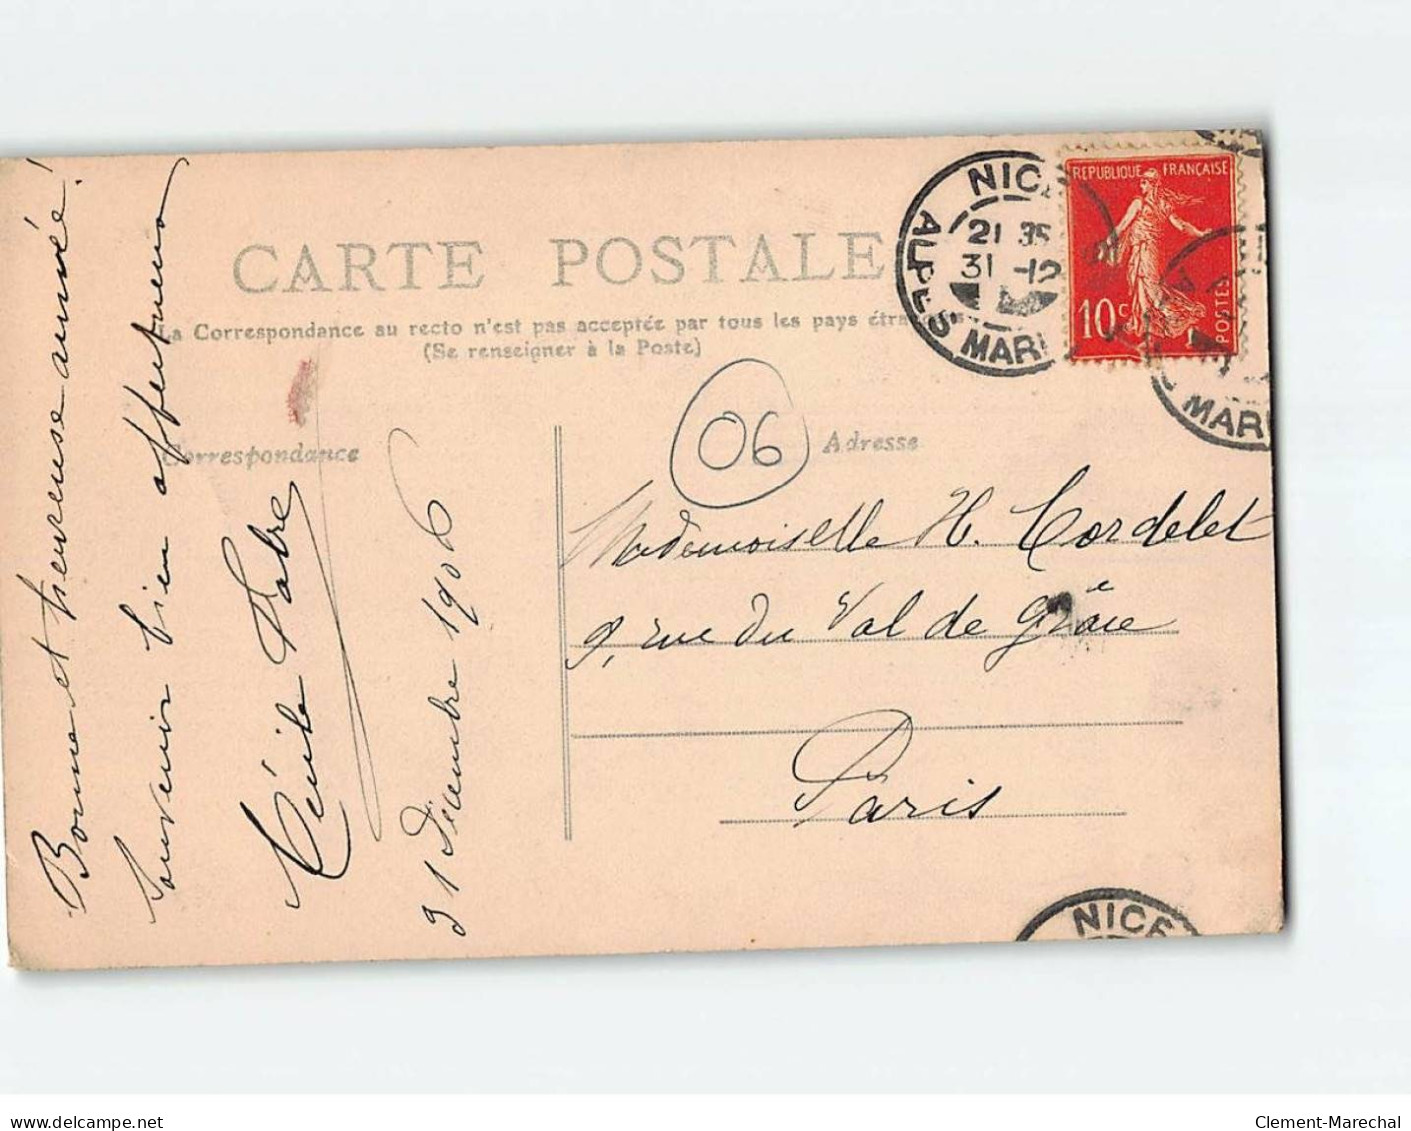 CARTE POSTALE
La Correspondance au recto n'est pas acceptée par tous les pays étra
(Se renseigner à la Poste)
Correspondance
Adresse
06
Bonne et heureuse année!
Souvenir bien affectueux
Cécile Fabre
31 Décembre 1906
Mademoiselle H. Cordelet
9, rue du Val de Grâce
Paris
NICE
21 35
31 -12
ALPES MARI
REPUBLIQUE FRANÇAISE
10c
POSTES
MARI
NICE
www.delcampe.net
Clement-Marechal